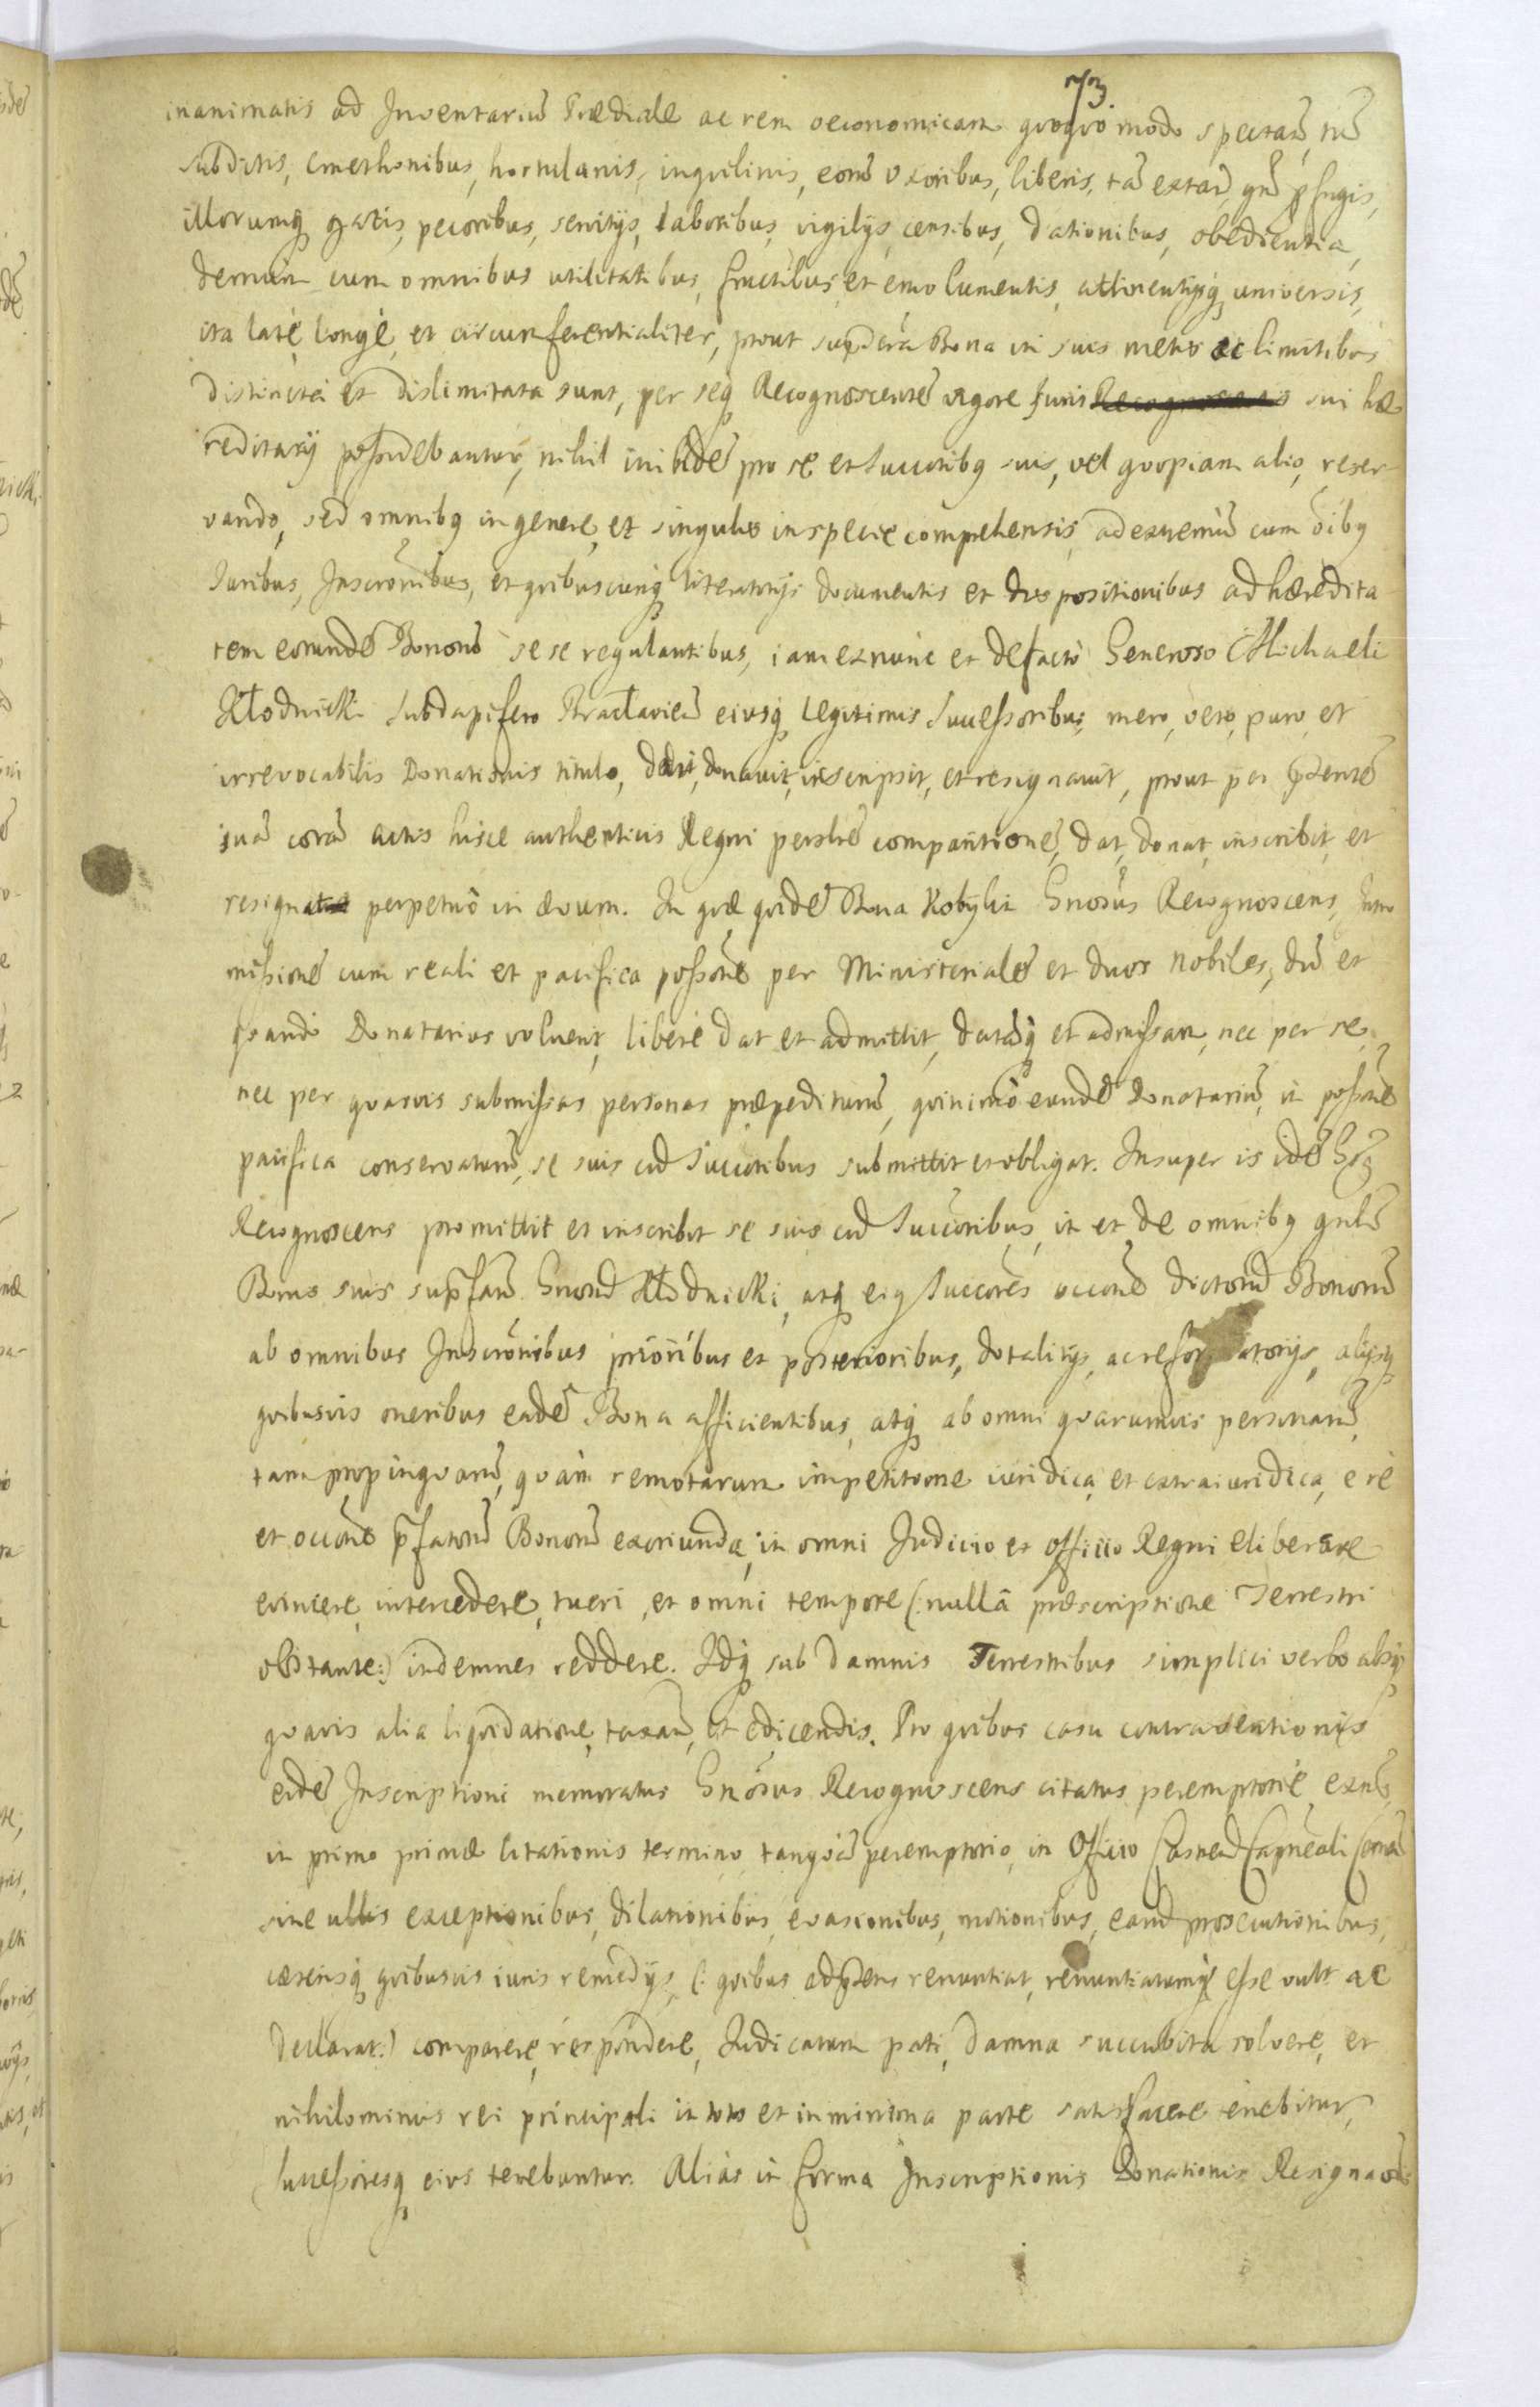 73.
inanimatis ad Inventariũ Prædiale ac rem oeconomicam quoquo modo spectan̄, tũ
subditis, cmethonibus, hortulanis, inquilinis, eorũ uxoribus, liberis, tã extan̄, quã ꝓfugis,
illorumq́ꝫ gazis, pecoribus, servitijs, laboribus, vigilijs, censibus, dationibus, obedientia,
demum cum omnibus utilitatibus, fructibus, et emolumentis, attinentijsq́ꝫ universis,
ita late, longe, et circumferentialiter, prout supradicta Bona in suis metis ac limitibus
distincta et dislimitata sunt, per seq́ꝫ Recognoscentẽ vigore Juris sui hæ
reditarij possidebantur, nihil inibidẽ pro se et Succoribꝫ suis, vel quopiam alio, reser
vando, sed omnibꝫ in genere, et singulis in specie comprehensis, ad extremũ cum oĩbꝫ
Juribus, Inscrõnibus, et quibuscunq́ꝫ literatorijs documentis et dispositionibus ad hæredita
tem eorundẽ Bonorũ sese regulantibus, iam ex nunc et de facto Generoso Michaeli
Kłodnicki Subdapifero Bracłavień eiusq́ꝫ legitimis Successoribus, mero, vero, puro, et
irrevocabilis Donationis titulo, dedit, donavit, inscripsit, et resignavit, prout per p̃sentẽ
suã corã actis hisce authenticis Regni persñlẽ comparitionẽ, dat, donat, inscribit, et
resignat perpetuo in ævum. In quæ quidẽ Bona Kobylic Gñosus Recognoscens, Intro
missionẽ cum reali et pacifica possõne per Ministerialẽ et duos Nobiles, dũ et
quando Donatarius voluerit, libere dat et admittit, datãq́ꝫ et admissam, nec per se,
nec per quasvis submissas personas præpediturũ, quinimo eundẽ Donatariũ, in possõne
pacifica conservaturũ, se suis cũ Succoribus submittit et obligat. Insuper is idẽ Gñosꝫ
Recognoscens promittit et inscribit se suis cũ Succoribus, in et de omnibꝫ gñlr̃
Bonis suis sup̃fatũ Gñosũ Kłodnicki, atq́ꝫ eiꝫ Succores, occõne dictorũ Bonorũ
ab omnibus Inscrõnibus prioribus et posterioribus, dotalitijs, ac reformatorijs, alijsq́ꝫ
quibusvis oneribus eadẽ Bona afficientibus, atq́ꝫ ab omni quarumvis personarũ,
tam propinquarũ, quam remotarum impetitione iuridica, et extraiuridica, e re
et occõne p̃fatorũ Bonorũ exoriunda, in omni Judicio et Officio Regni eliberare
evincere, intercedere, tueri, et omni tempore (: nullâ præscriptione Terrestri
obstante :) indemnes reddere. Idq́ꝫ sub damnis Terrestribus simplici verbo absq́ꝫ
quavis alia liquidatione, taxan̄, et edicendis. Pro quibus casu contraventionis
eidẽ Inscriptioni memoratus Gñosus Recognoscens citatus peremptorie, ex nũc
in primo primæ citationis termino, tanquã peremptorio, in Officio Castren̄ Capñeali Cracovień
sine ullis exceptionibus, dilationibus, evasionibus, motionibus, earũ prosecutionibus,
cæterisq́ꝫ quibusvis iuris remedijs, (: quibus ad p̃sens renuntiat, renuntiatumq́ꝫ esse vult ac
declarat :) comparere, respondere, Judicatum pati, damna succubita solvere, et
nihilominus rei principali in toto et in minima parte satisfacere tenebitur,
Successoresq́ꝫ eius tenebuntur. Alias in forma Inscriptionis Donationis Resignaõnis